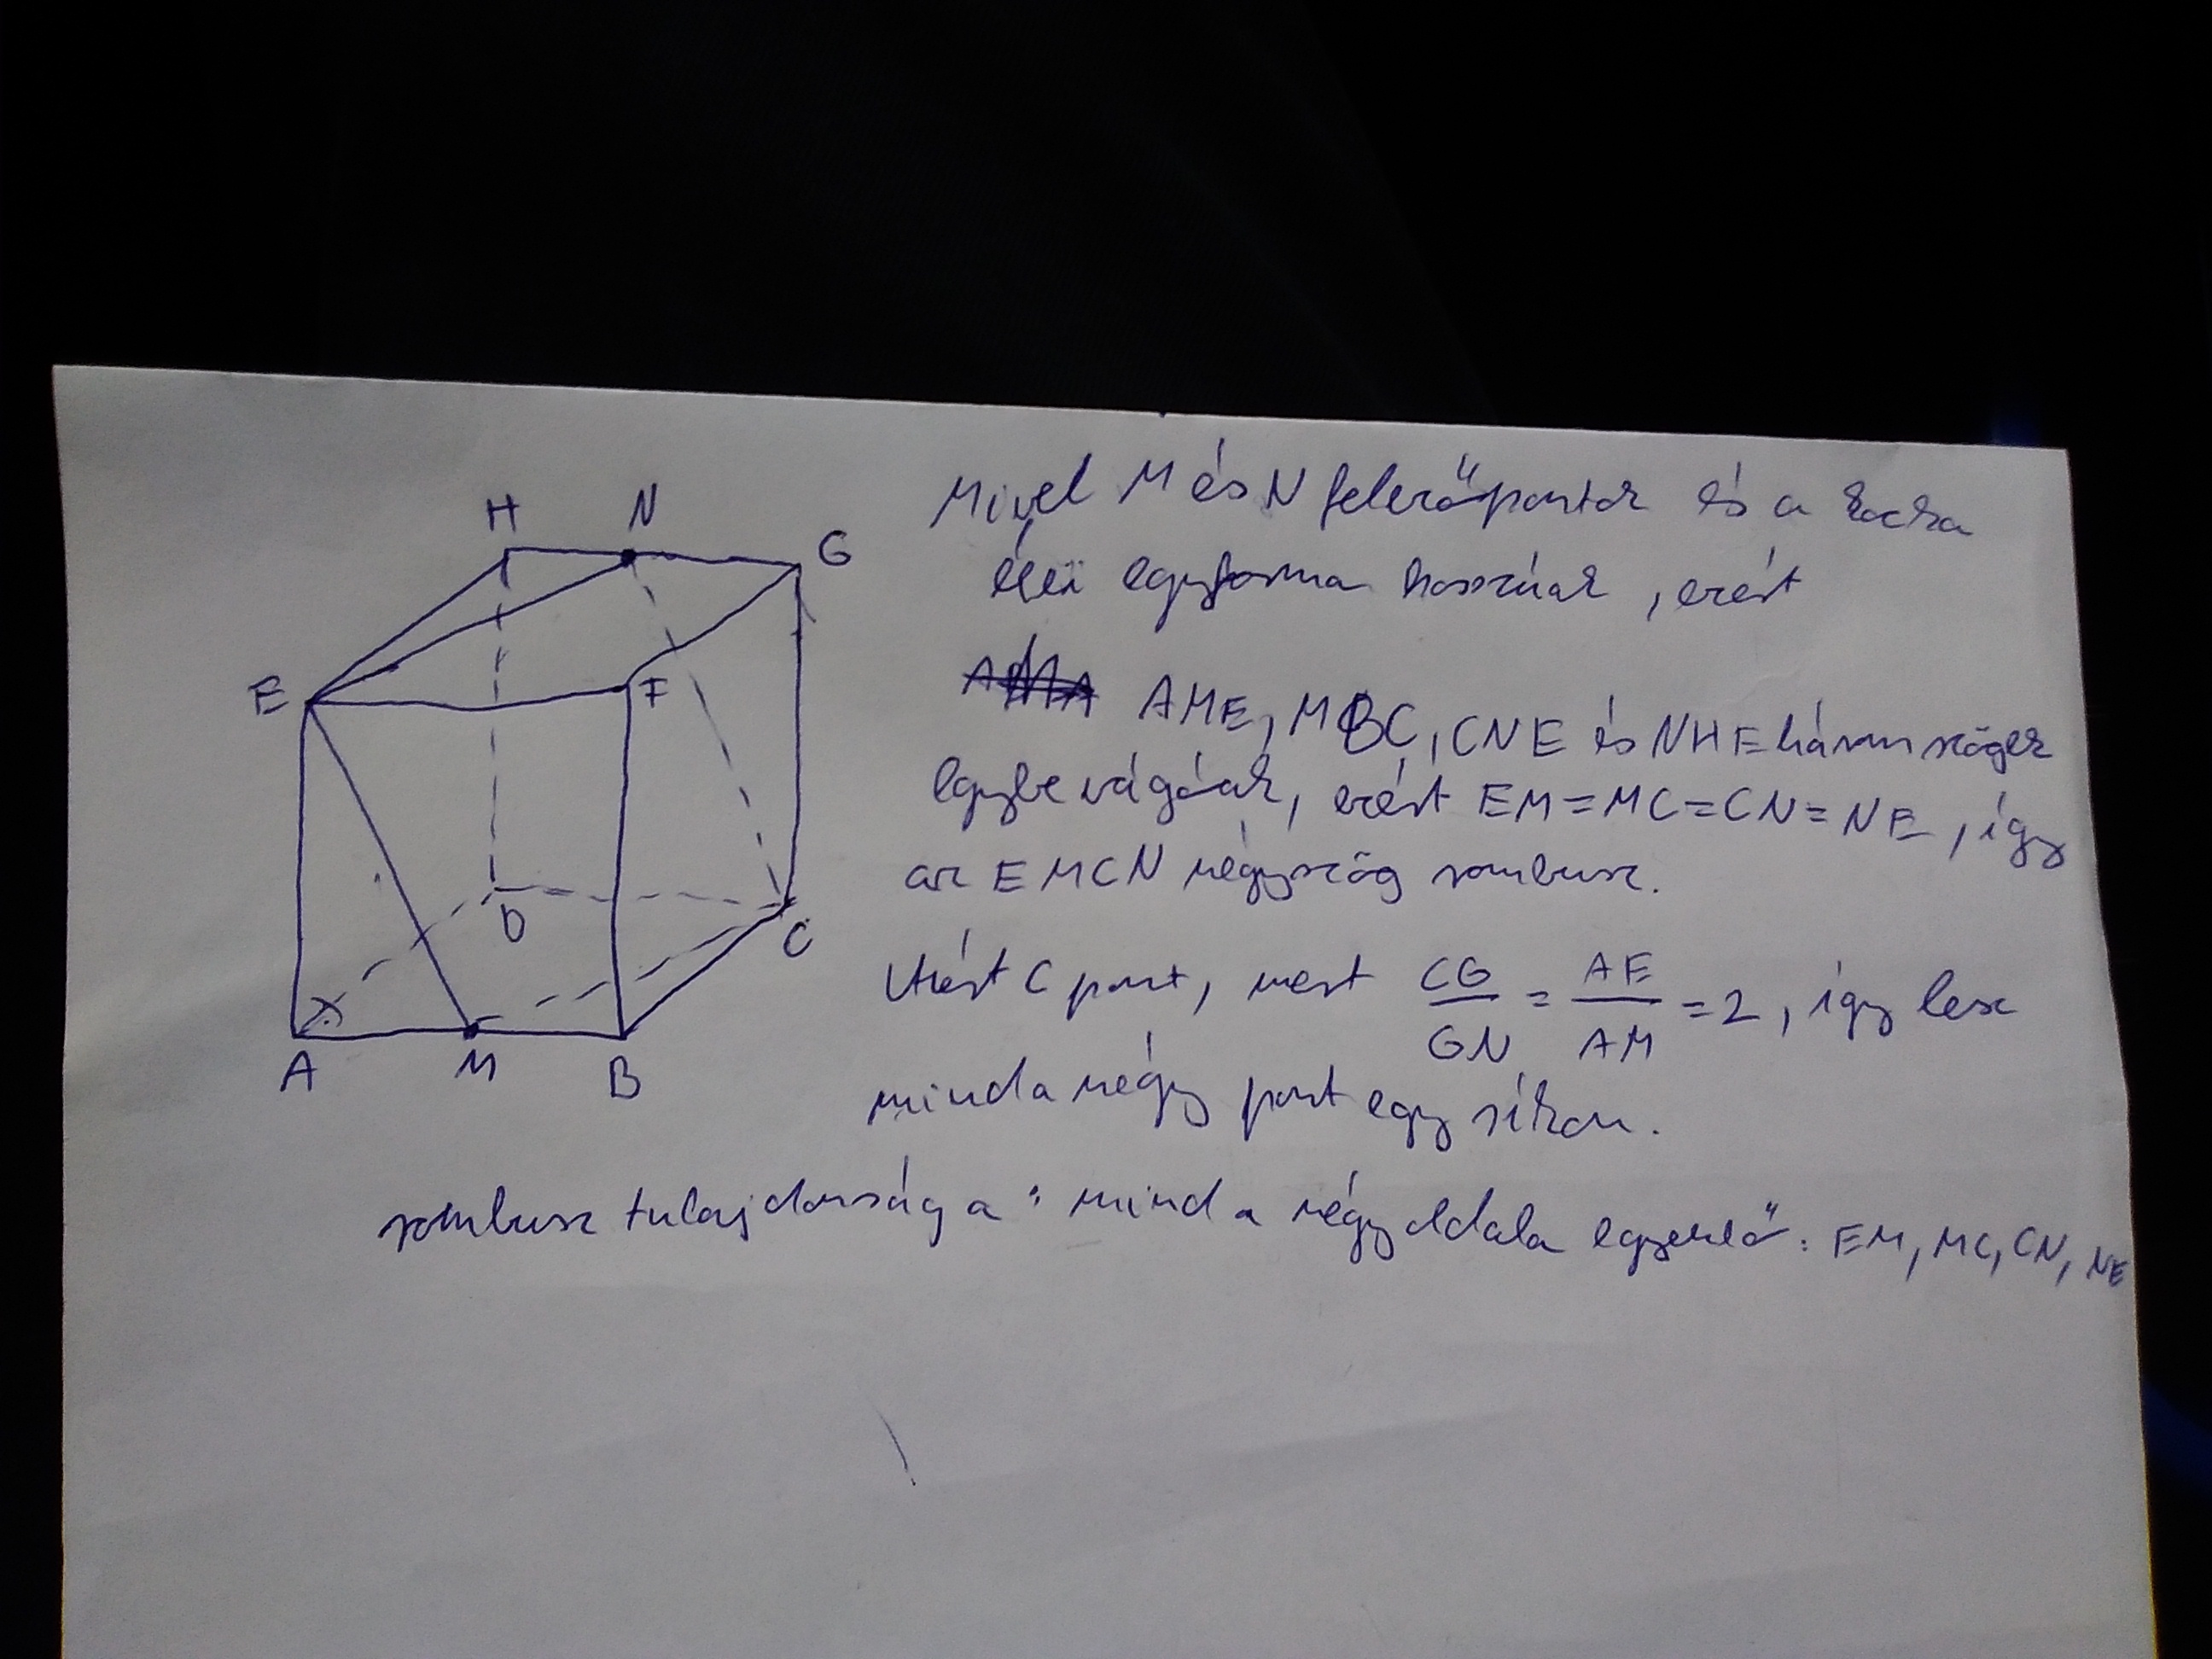 H N G
E F
D C
A M B
Mivel M és N felezőpontok és a kocka
élei egyforma hosszúak, ezért
AME, MBC, CNE és NHE háromszögek
egybevágóak, ezért EM=MC=CN=NE, így
az EMCN négyszög rombusz.
Miért C pont, mert CG/GN = AE/AM = 2, így lesz
mind a négy pont egy síkon.
rombusz tulajdonsága: mind a négy oldala egyenlő: EM, MC, CN, NE